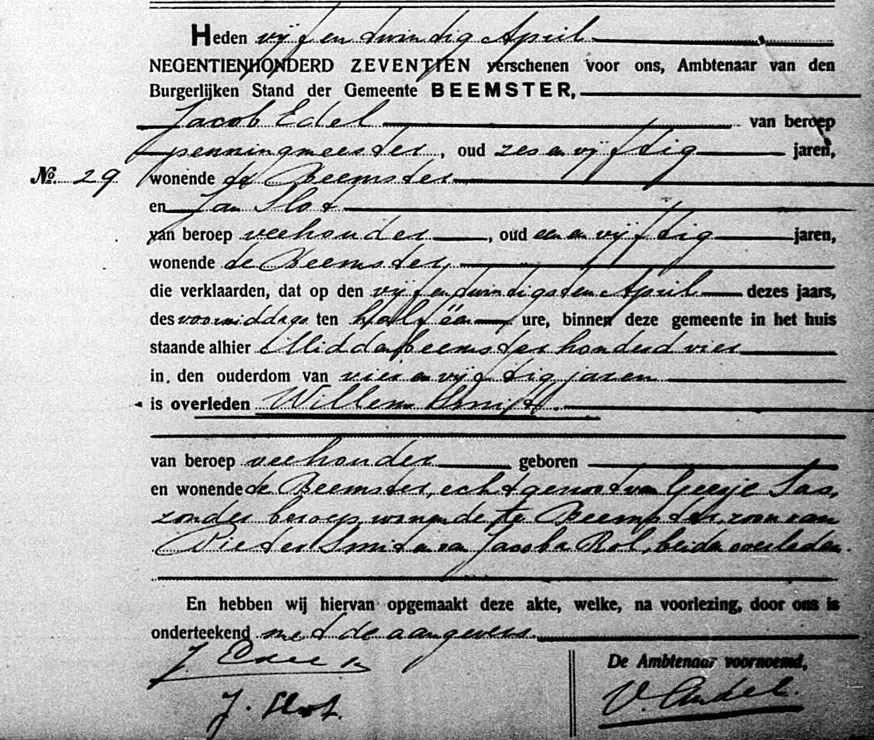 Heden vijf en twintig April
NEGENTIENHONDERD ZEVENTIEN verschenen voor ons, Ambtenaar van den
Burgerlijken Stand der Gemeente BEEMSTER,
Jacob Edel van beroep
penningmeester, oud zes en vijftig jaren,
No. 29 wonende de Beemster
en Jan Slot
van beroep veehouder, oud een en vijftig jaren,
wonende de Beemster,
die verklaarden, dat op den vijf en twintigsten April dezes jaars,
des voormiddags ten half één ure, binnen deze gemeente in het huis
staande alhier Middenbeemster honderd vier
in den ouderdom van vier en vijftig jaren
is overleden Willem Smit
van beroep veehouder geboren
en wonende de Beemster, echtgenoot van Geesje Sas,
zonder beroep, wonende te Beemster, zoon van
Pieter Smit en van Jacoba Rol, beiden overleden.
En hebben wij hiervan opgemaakt deze akte, welke, na voorlezing, door ons is
onderteekend met de aangevers
J. Edel
De Ambtenaar voornoemd,
J. Slot.